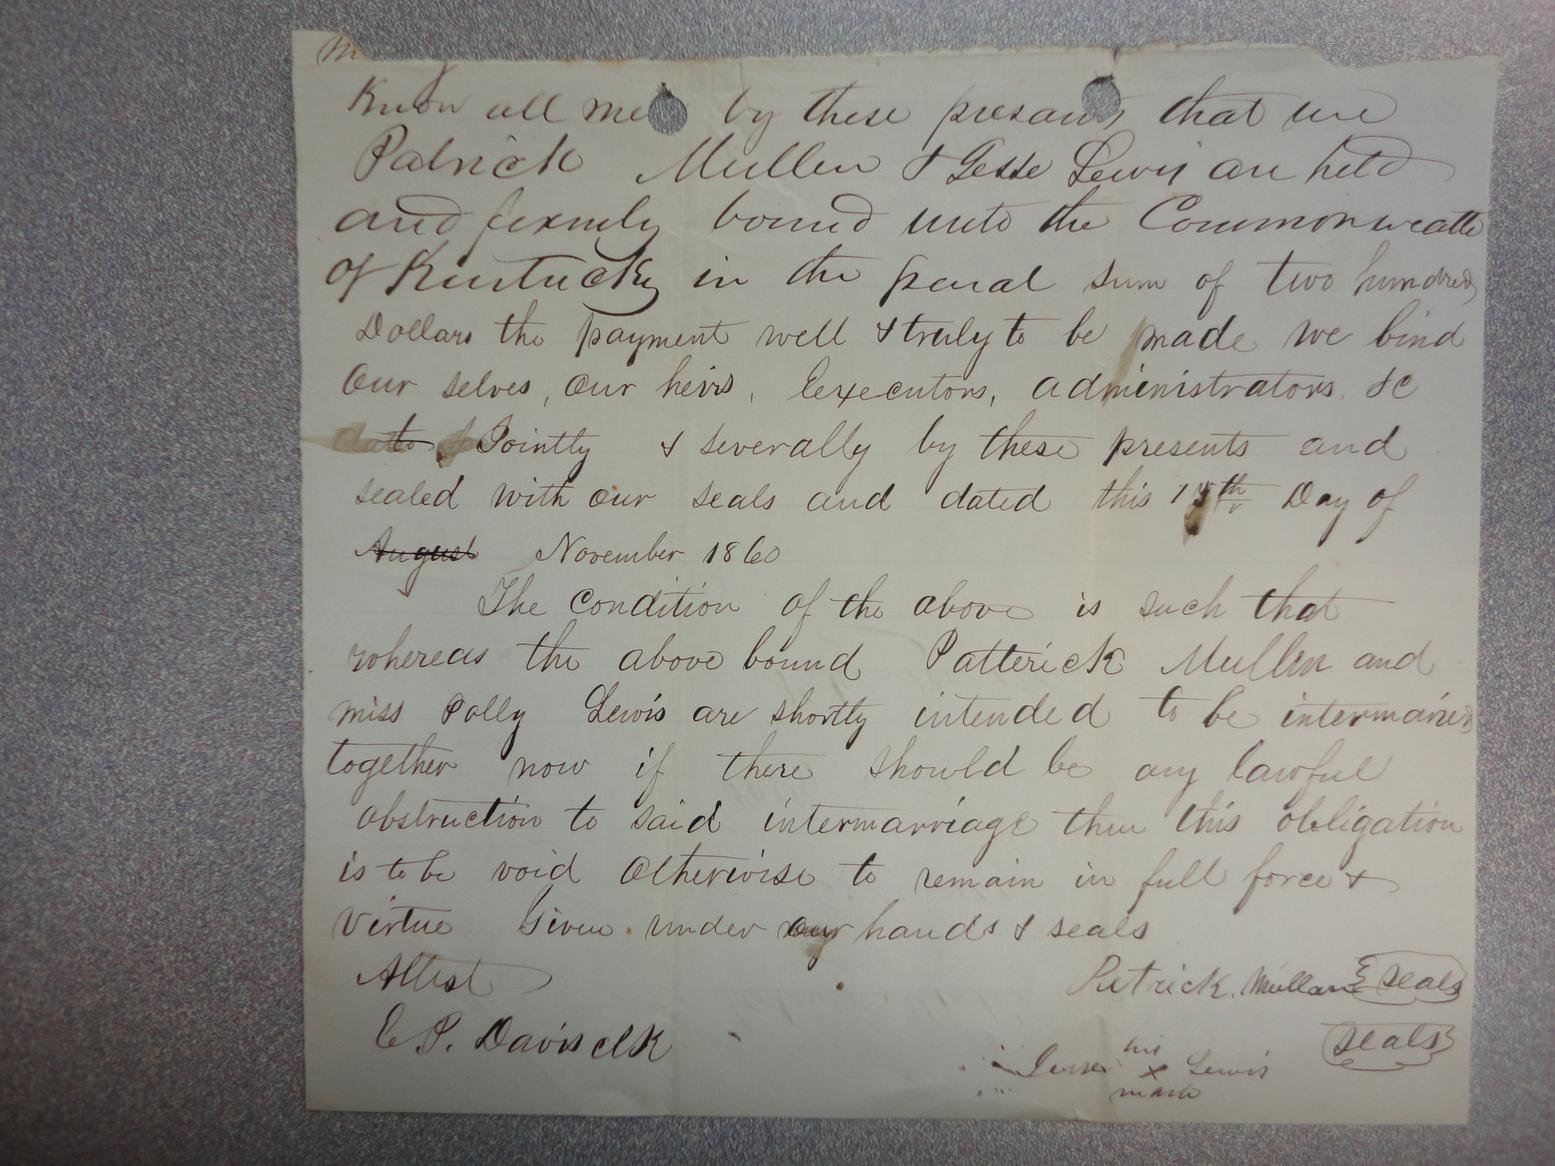 Know all me by these presants that we
Patrick Mullen & Jesse Lewis are held
and firmly bound unto the Commonwealth
of Kentucky in the penal sum of two hundred
Dollars the payment well & truly to be made we bind
Our selves, our heirs, Eexecutors, administrators &c
date Jointly & severally by these presents and
sealed with our seals and dated this Day of
August November 1860
The Condition of the above is such that
whereas the above bound Patterick Mullen and
miss Polly Lewis are shortly intended to be intermarried
together now if there should be any lawful
obstruction to said intermarriage then this obligation
is to be void otherwise to remain in full force &
virtue Given under our hands & seals
Attest Patrick. Mullan seal
E P. Davis clk seals
his
Lewis
x
mark